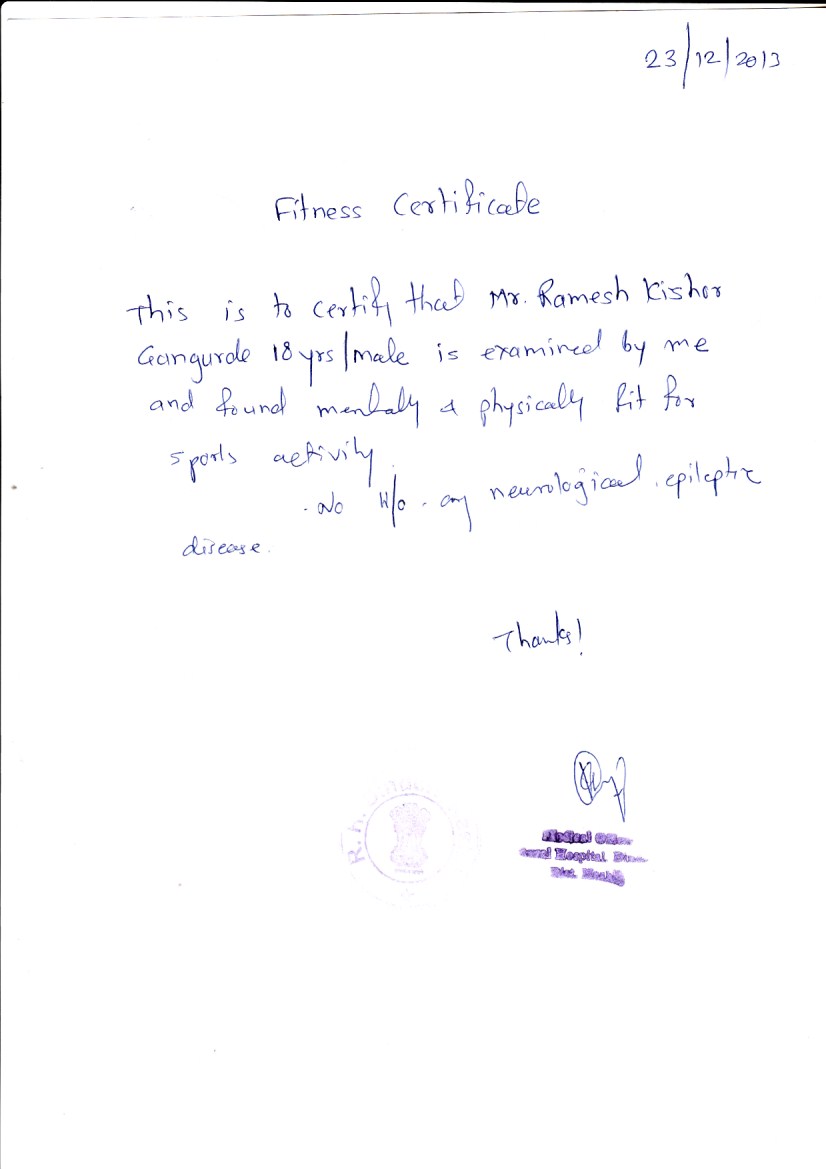 23/12/2013
Fitness Certificate
This is to certify that Mr. Ramesh Kishor
Gangurde 18 yrs/male is examined by me
and found mentaly & physically fit for
sports activity.
. No H/o . any neurological . epileptic
disease.
Thanks!
Medical
Hospital
Dist.
R. H.